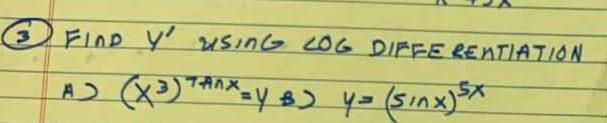 ③ FIND Y' USING LOG DIFFERENTIATION
A) (X³)^TANX = Y B) Y = (SINX)^5X